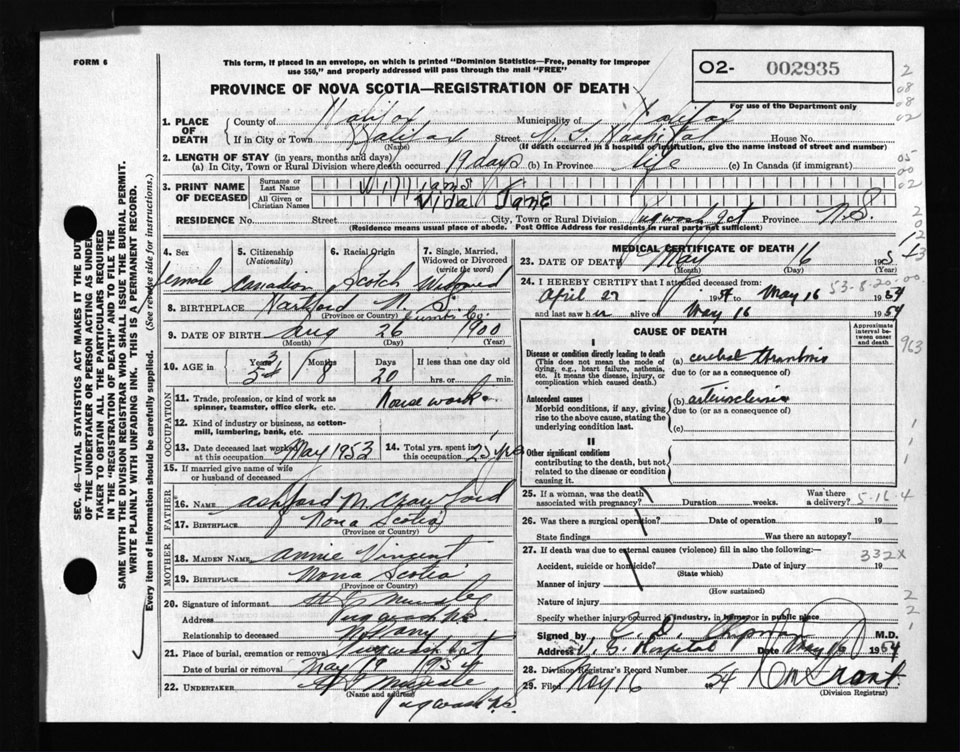 FORM 6
This form, if placed in an envelope, on which is printed "Dominion Statistics—Free, penalty for improper
use $50," and properly addressed will pass through the mail "FREE"
PROVINCE OF NOVA SCOTIA—REGISTRATION OF DEATH
O2- 002935
For use of the Department only
1. PLACE OF DEATH
County of Halifax Municipality of Halifax
If in City or Town Halifax Street V. G. Hospital House No.
(Name) (If death occurred in a hospital or institution, give the name instead of street and number)
2. LENGTH OF STAY (in years, months and days)
(a) In City, Town or Rural Division where death occurred 19 days (b) In Province life (c) In Canada (if immigrant)
3. PRINT NAME OF DECEASED
Surname or Last Name Williams
All Given or Christian Names Vida Jane
RESIDENCE No. Street City, Town or Rural Division Pugwash Jct Province N.S.
(Residence means usual place of abode. Post Office Address for residents in rural parts not sufficient)
4. Sex 5. Citizenship (Nationality) 6. Racial Origin 7. Single, Married, Widowed or Divorced (write the word)
Female Canadian Scotch Widowed
8. BIRTHPLACE Hartford N. S.
(Province or Country) Cumb. Co.
9. DATE OF BIRTH Aug 26 1900
(Month) (Day) (Year)
10. AGE in Years Months Days If less than one day old
53 8 20 hrs. or min.
OCCUPATION
11. Trade, profession, or kind of work as spinner, teamster, office clerk, etc. housework
12. Kind of industry or business, as cotton-mill, lumbering, bank, etc.
13. Date deceased last worked at this occupation May 1953 14. Total yrs. spent in this occupation 25 yrs
15. If married give name of wife or husband of deceased
FATHER
16. NAME Ashford M. Crawford
17. BIRTHPLACE Nova Scotia
(Province or Country)
MOTHER
18. MAIDEN NAME Annie Vincent
19. BIRTHPLACE Nova Scotia
(Province or Country)
20. Signature of informant
Address Pugwash N.S.
Relationship to deceased
21. Place of burial, cremation or removal Pugwash Jct
Date of burial or removal May 19 1954
22. UNDERTAKER
(Name and address) Pugwash N.S.
MEDICAL CERTIFICATE OF DEATH
23. DATE OF DEATH May 16 195
(Month) (Day) (Year)
24. I HEREBY CERTIFY that I attended deceased from:
April 27 1954 to May 16 1954
and last saw her alive on May 16 1954
53-8-20-00
CAUSE OF DEATH
Approximate interval between onset and death
I
Disease or condition directly leading to death (a) cerebral thrombosis
(This does not mean the mode of dying, e.g., heart failure, asthenia, etc. It means the disease, injury, or complication which caused death.)
due to (or as a consequence of)
Antecedent causes (b) arteriosclerosis
Morbid conditions, if any, giving rise to the above cause, stating the underlying condition last.
due to (or as a consequence of)
(c)
II
Other significant conditions
contributing to the death, but not related to the disease or condition causing it.
25. If a woman, was the death associated with pregnancy? Duration weeks. Was there a delivery?
5-16-4
26. Was there a surgical operation? Date of operation 19
State findings Was there an autopsy?
27. If death was due to external causes (violence) fill in also the following:—
332X
Accident, suicide or homicide? Date of injury 19
(State which)
Manner of injury
(How sustained)
Nature of injury
Specify whether injury occurred in industry, in home or in public place
Signed by M.D.
Address V. G. Hospital Date May 16 1954
28. Division Registrar's Record Number
29. Filed May 16 1954
(Division Registrar)
SEC. 46—VITAL STATISTICS ACT MAKES IT THE DUTY
OF THE UNDERTAKER OR PERSON ACTING AS UNDER-
TAKER TO OBTAIN ALL THE PARTICULARS REQUIRED
IN THE "REGISTRATION OF DEATH" AND TO FILE THE
SAME WITH THE DIVISION REGISTRAR WHO SHALL ISSUE THE BURIAL PERMIT.
WRITE PLAINLY WITH UNFADING INK. THIS IS A PERMANENT RECORD.
Every item of information should be carefully supplied. (See reverse side for instructions.)